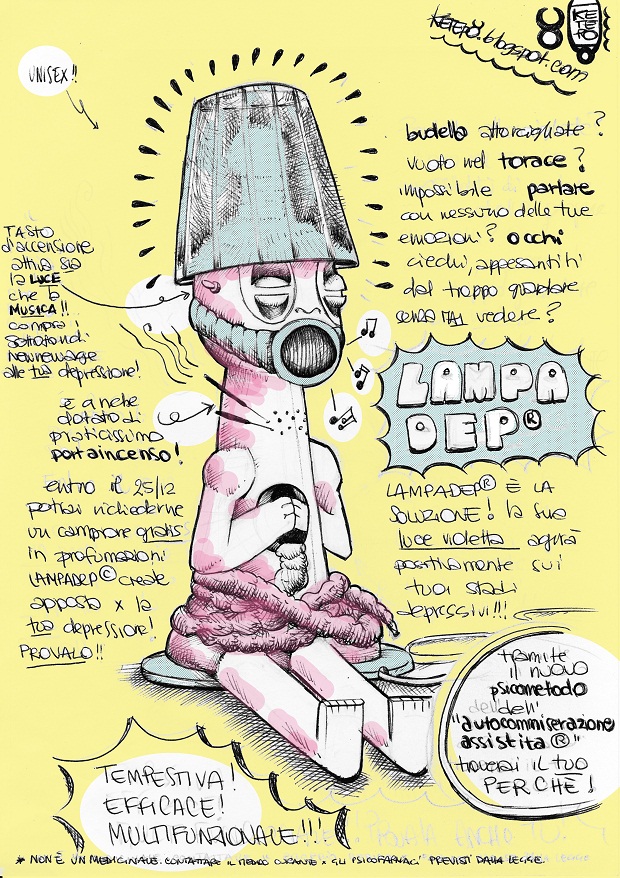 ketepo.blogspot.com
KE
TE
PO
UNISEX!!
budella attorcigliate?
vuoto nel torace?
impossibile parlare
con nessuno delle tue
emozioni? occhi
ciechi, appesantiti
dal troppo guardare
senza MAI vedere?
TASTO
d'accensione
attiva sia
la LUCE
che la
MUSICA!!
compra i
sottofondi
newage
alle tua depressione!
è anche
dotato di
praticissimo
portaincenso!
LAMPA
DEP®
entro il 25/12
potrai richiederne
un campione gratis
in profumazioni
LAMPADEP© create
apposta x la
tua depressione!
PROVALO!!
LAMPADEP® È LA
SOLUZIONE! la sua
luce violetta agirà
positivamente sui
tuoi stadi
depressivi!!!
tramite
il nuovo
psicometodo
dell'
"autocommiserazione
assistita®"
troverai il tuo
PERCHÈ!
TEMPESTIVA!
EFFICACE!
MULTIFUNZIONALE!!!
* NON È UN MEDICINALE. CONTATTARE IL MEDICO CURANTE X GLI PSICOFARMACI PREVISTI DALLA LEGGE.